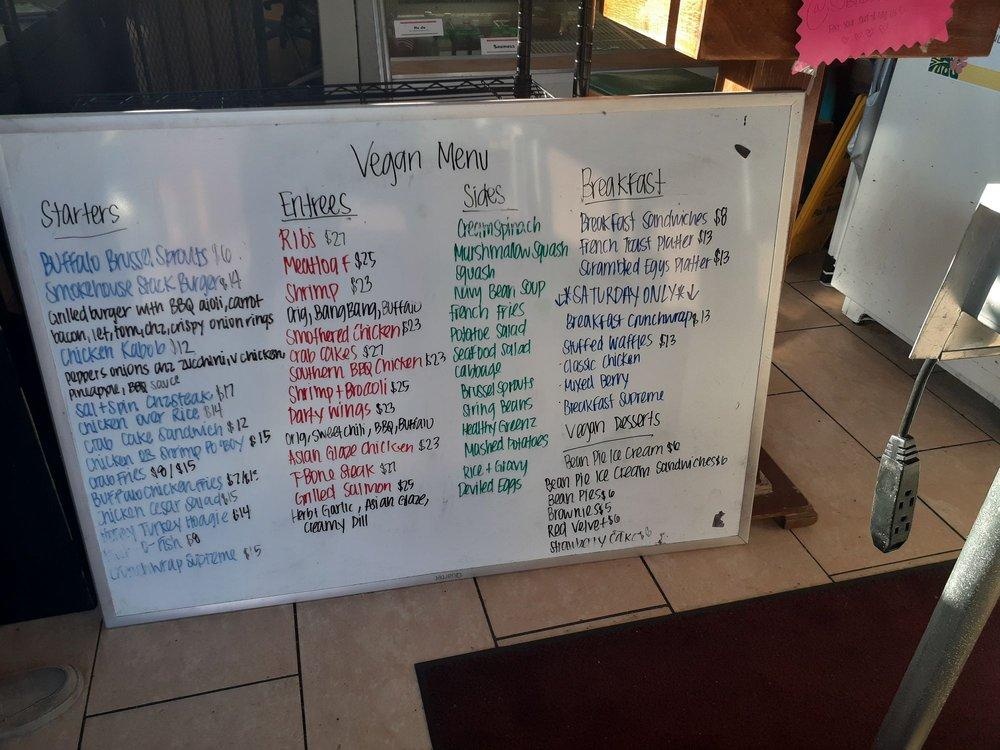 Vegan Menu
Starters
Buffalo Brussel Sprouts $6
Smokehouse Stack Burger $14
Grilled burger with BBQ aioli, carrot
bacon, let, tom, chz, crispy onion rings
Chicken Kabob $12
peppers onions and zucchini, v chicken
pineapple, BBQ sauce
Salt+Spin Chzsteak $17
Chicken over Rice $14
Crab Cake Sandwich $12
Chicken or Shrimp Po'Boy $15
Crab Fries $9/$15
Buffalo Chicken Fries
Chicken Cesar Salad $15
Honey Turkey Hoagie $14
O-Fish $8
Crunchwrap Supreme $15
Entrees
Ribs $27
Meatloaf $25
Shrimp $23
Orig, BangBang, Buffalo
Smothered Chicken $23
Crab Cakes $27
Southern BBQ Chicken $23
Shrimp + Brocoli $25
Party Wings $23
Orig, Sweet chili, BBQ, Buffalo
Asian Glaze Chicken $23
T-Bone Steak $27
Grilled Salmon $25
Herb + Garlic, Asian Glaze,
Creamy Dill
Sides
Cream Spinach
Marshmalow Squash
Squash
Navy Bean Soup
French Fries
Potatoe Salad
Seafood Salad
Cabbage
Brussel sprouts
String Beans
Healthy Greenz
Mashed Potatoes
Rice + Gravy
Deviled Eggs
Breakfast
Breakfast Sandwiches $8
French Toast Platter $13
Scrambled Eggs Platter $13
↓*SATURDAY ONLY*↓
Breakfast Crunchwrap $13
Stuffed Waffles $13
·Classic Chicken
·Mixed Berry
·Breakfast Supreme
Vegan Desserts
Bean Pie Ice Cream $6
Bean Pie Ice Cream Sandwiches $6
Bean Pies $6
Brownies $5
Red Velvet $6
Strawberry Cake $6
Quartet